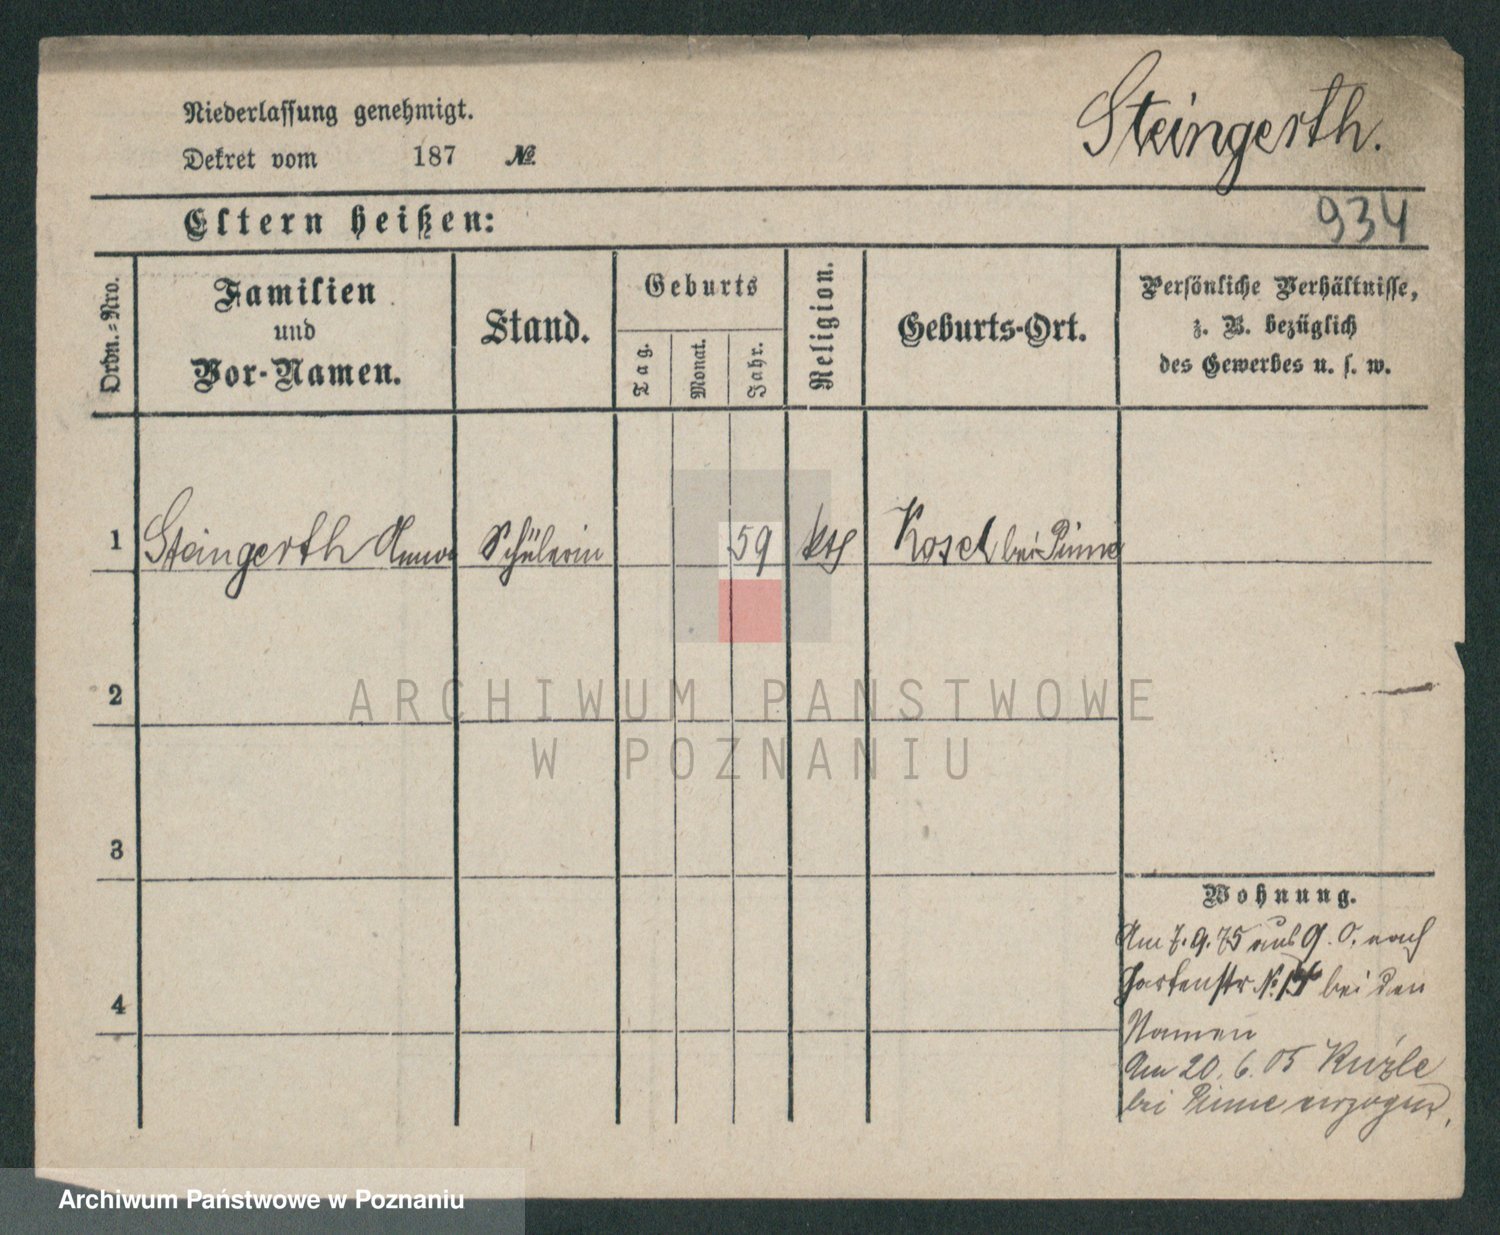 Steingerth.
Niederlassung genehmigt.
Dekret vom 187 №
Eltern heißen:
934
Ordn.=Nro.
Familien
und
Vor-Namen.
Stand.
Geburts
Tag.
Monat.
Jahr.
Religion.
Geburts-Ort.
Persönliche Verhältnisse,
z. B. bezüglich
des Gewerbes u. s. w.
1 Steingerth Anna Schülerin 59 kth Kosel bei Pinne
2
3
4
Wohnung.
Am 7.9.75 aus G.O. nach
Gartenstr. № bei den
Namen
Am 20.6.05
bei Pinne verzogen.
ARCHIWUM PAŃSTWOWE
W POZNANIU
Archiwum Państwowe w Poznaniu